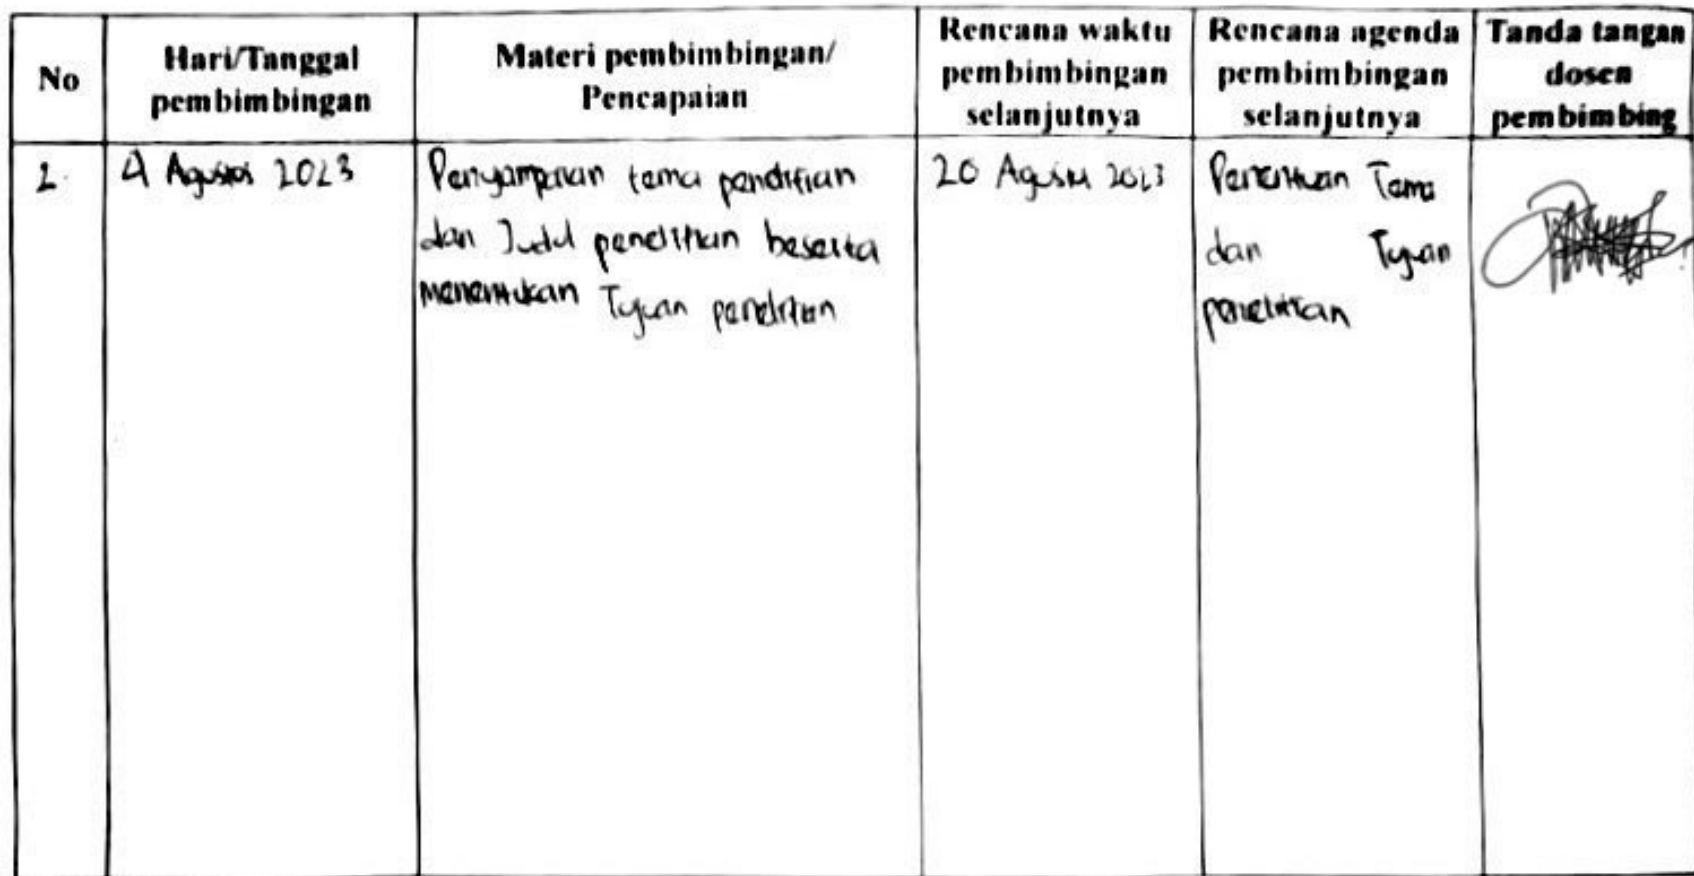 No
Hari/Tanggal
pembimbingan
Materi pembimbingan/
Pencapaian
Rencana waktu
pembimbingan
selanjutnya
Rencana agenda
pembimbingan
selanjutnya
Tanda tangan
dosen
pembimbing
2.
4 Agustus 2023
Penyampaian tema penelitian
dan Judul penelitian beserta
menentukan Tujuan penelitian
20 Agustus 2023
Penentuan Tema
dan Tujuan
penelitian